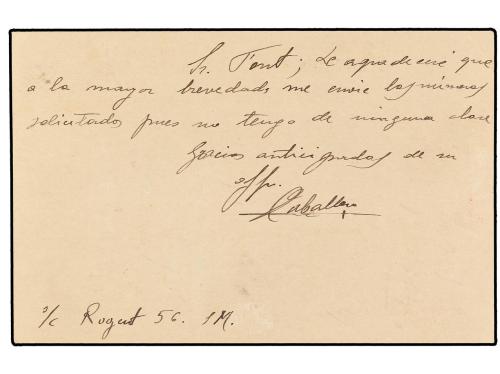 Sr. Font; Le agradeceré que
a la mayor brevedad me envie los números
solicitados pues no tengo de ninguna clase
Gracias anticipadas de su
affmo.
Caballero
s/c Rogent 56. 1M.